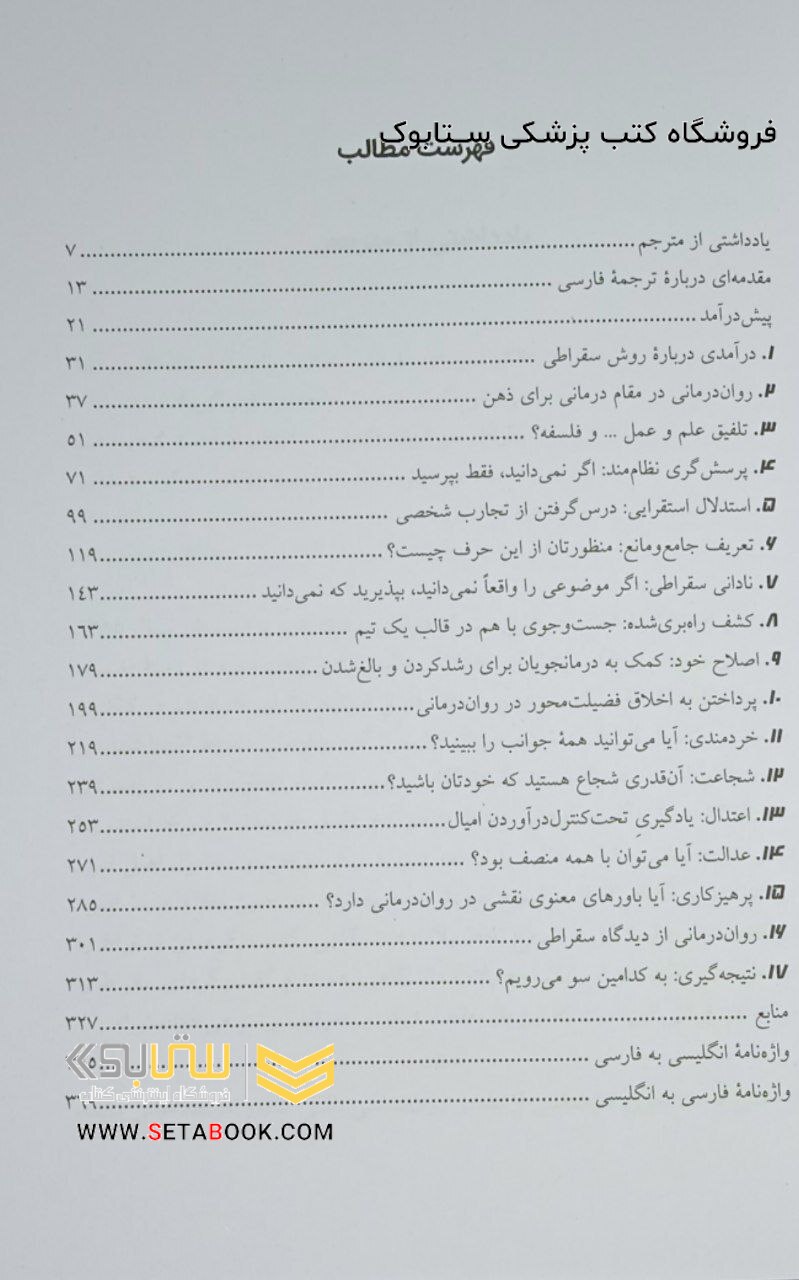 فروشگاه کتب پزشکی ستابوک
فهرست مطالب
یادداشتی از مترجم ... ۷
مقدمه‌ای دربارهٔ ترجمهٔ فارسی ... ۱۳
پیش‌درآمد ... ۲۱
۱. درآمدی دربارهٔ روش سقراطی ... ۳۱
۲. روان‌درمانی در مقام درمانی برای ذهن ... ۳۷
۳. تلفیق علم و عمل ... و فلسفه؟ ... ۵۱
۴. پرسش‌گری نظام‌مند: اگر نمی‌دانید، فقط بپرسید ... ۷۱
۵. استدلال استقرایی: درس‌گرفتن از تجارب شخصی ... ۹۹
۶. تعریف جامع‌ومانع: منظورتان از این حرف چیست؟ ... ۱۱۹
۷. نادانی سقراطی: اگر موضوعی را واقعاً نمی‌دانید، بپذیرید که نمی‌دانید ... ۱۴۳
۸. کشف راه‌بری‌شده: جست‌وجوی با هم در قالب یک تیم ... ۱۶۳
۹. اصلاح خود: کمک به درمانجویان برای رشدکردن و بالغ‌شدن ... ۱۷۹
۱۰. پرداختن به اخلاق فضیلت‌محور در روان‌درمانی ... ۱۹۹
۱۱. خردمندی: آیا می‌توانید همهٔ جوانب را ببینید؟ ... ۲۱۹
۱۲. شجاعت: آن‌قدری شجاع هستید که خودتان باشید؟ ... ۲۳۹
۱۳. اعتدال: یادگیریِ تحت‌کنترل‌درآوردن امیال ... ۲۵۳
۱۴. عدالت: آیا می‌توان با همه منصف بود؟ ... ۲۷۱
۱۵. پرهیزکاری: آیا باورهای معنوی نقشی در روان‌درمانی دارد؟ ... ۲۸۵
۱۶. روان‌درمانی از دیدگاه سقراطی ... ۳۰۱
۱۷. نتیجه‌گیری: به کدامین سو می‌رویم؟ ... ۳۱۳
منابع ... ۳۲۷
واژه‌نامهٔ انگلیسی به فارسی
واژه‌نامهٔ فارسی به انگلیسی
فروشگاه اینترنتی کتاب
WWW.SETABOOK.COM